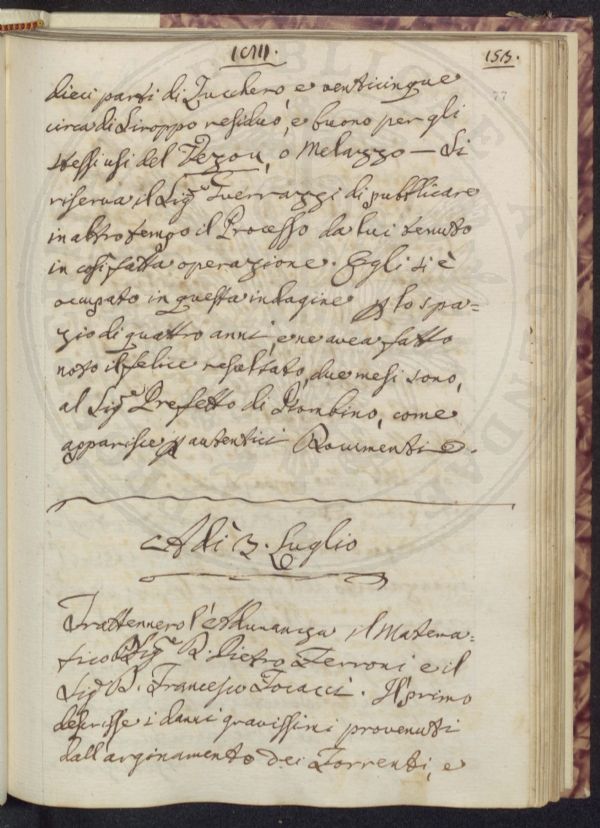 1811.
153.
77
dieci parti di Zucchero, e venticinque
circa di Siroppo residuo, e buono per gli
stessi usi del Vezou, o Melazzo — Si
riserva il Sig.e Guerrazzi di pubblicare
in altro tempo il Processo da lui tenuto
in cosi fatta operazione. Egli si è
occupato in questa indagine p lo spa=
zio di quattro anni, e ne avea fatto
noto il felice resultato, due mesi sono,
al Sig.e Prefetto di Piombino, come
apparisce p autentici Documenti
Adì 3. Luglio
Trattennero l'Adunanza il Matema=
tico Sig.e D. Pietro Ferroni e il
Sig.e D. Francesco Focacci. Il primo
descrisse i danni gravissimi provenuti
dall'arginamento dei Torrenti, e